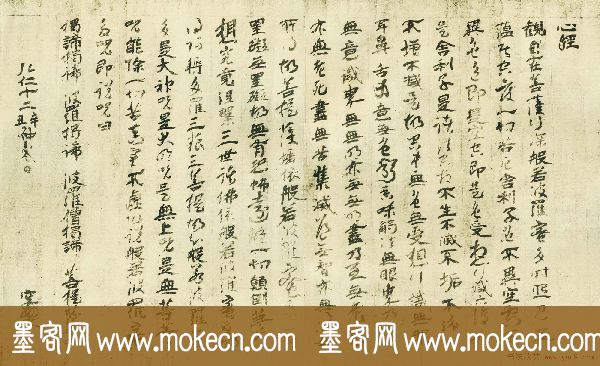 心經
觀自在菩薩行深般若波羅蜜多時照見
蘊皆空度一切苦厄舍利子色不異空空
異色色即是空空即是色受想行識亦復
是舍利子是諸法空相不生不滅不垢不淨
不增不減是故空中無色無受想行識無
耳鼻舌身意無色聲香味觸法無眼界乃
無意識界無無明亦無無明盡乃至無老
亦無老死盡無苦集滅道無智亦無
所得故菩提薩埵依般若波羅蜜
罣礙無罣礙故無有恐怖遠離一切顛倒夢
想究竟涅槃三世諸佛依般若波羅蜜
得阿耨多羅三藐三菩提故知般若波羅
多是大神咒是大明咒是無上咒是無等等
咒能除一切苦真實不虛故說般若波羅
多咒即說咒曰
揭諦揭諦 波羅揭諦 波羅僧揭諦 菩提
弘仁十二年
墨客网 www.mokecn.com 墨客网 www.mokecn.com